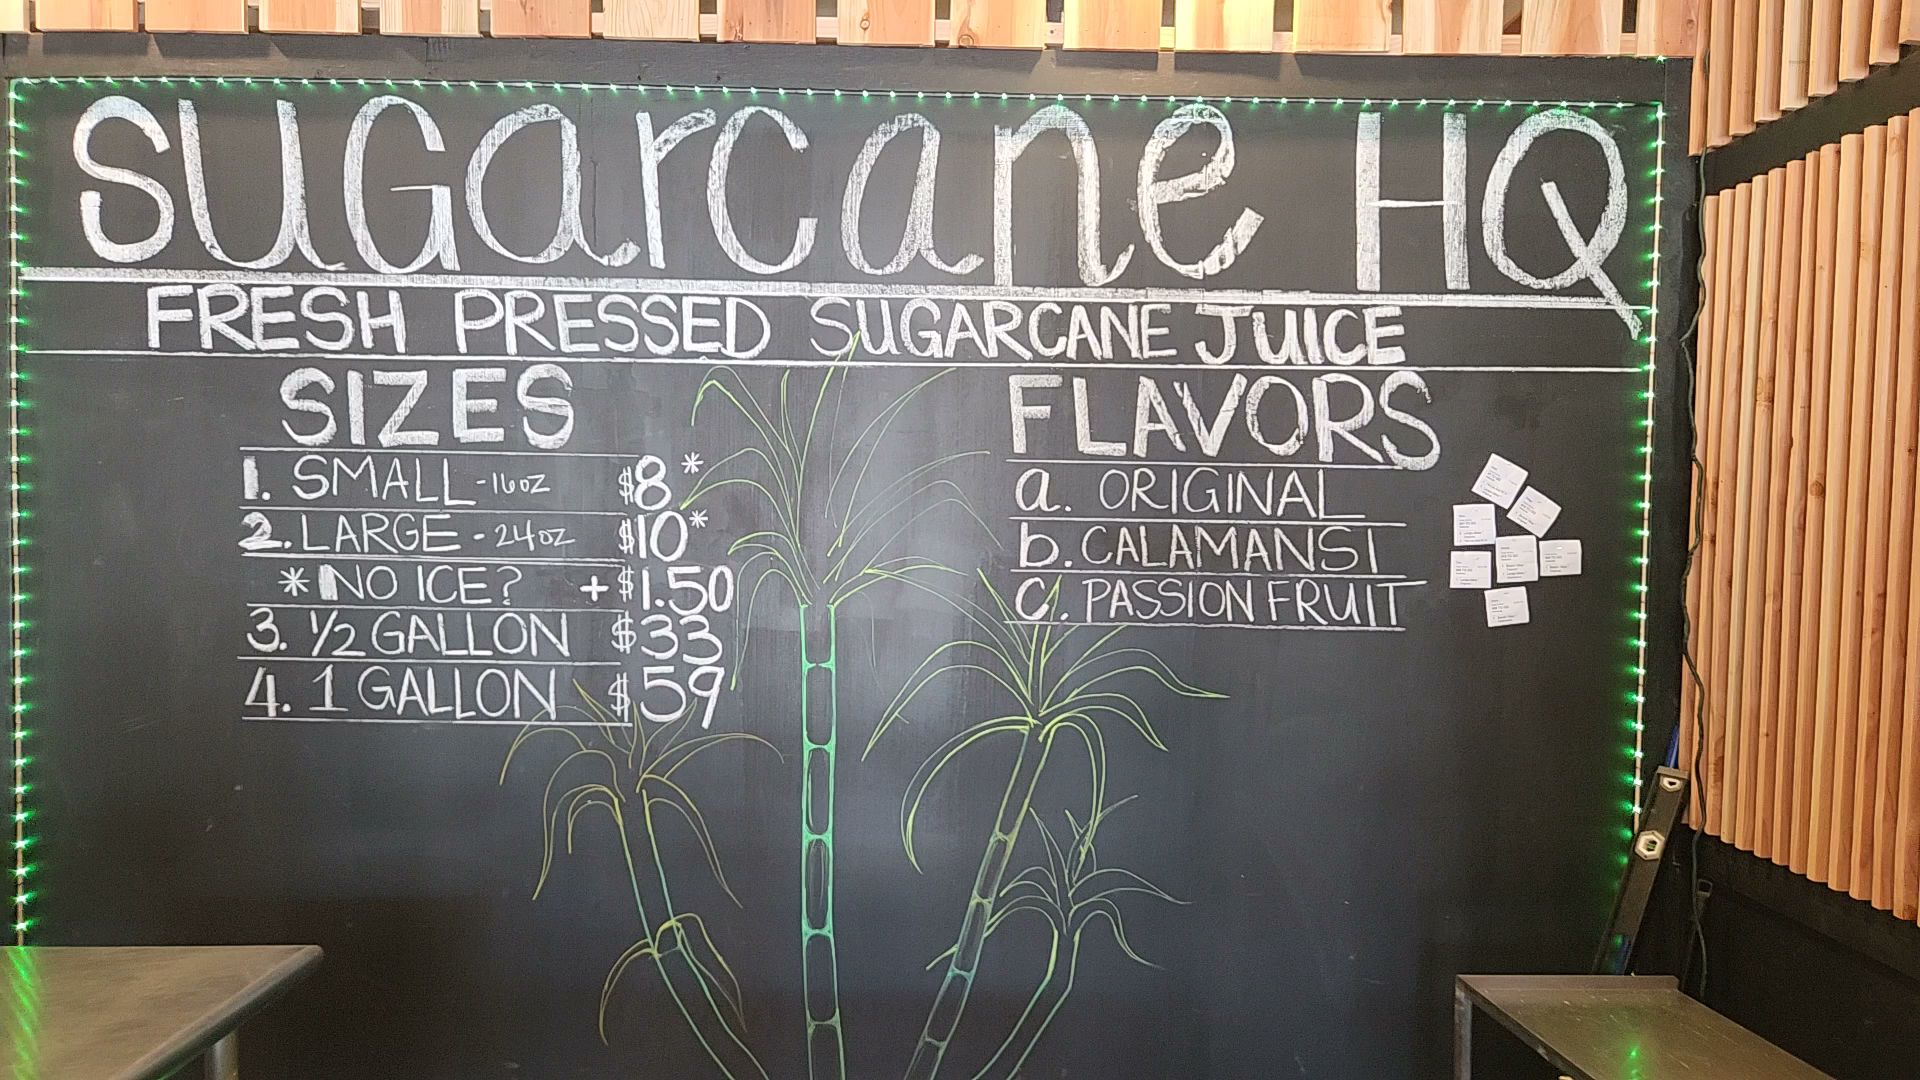 sugarcane HQ
FRESH PRESSED SUGARCANE JUICE
SIZES
1. SMALL - 16oz $8*
2. LARGE - 24oz $10*
* NO ICE? + $1.50
3. 1/2 GALLON $33
4. 1 GALLON $59
FLAVORS
a. ORIGINAL
b. CALAMANSI
c. PASSION FRUIT